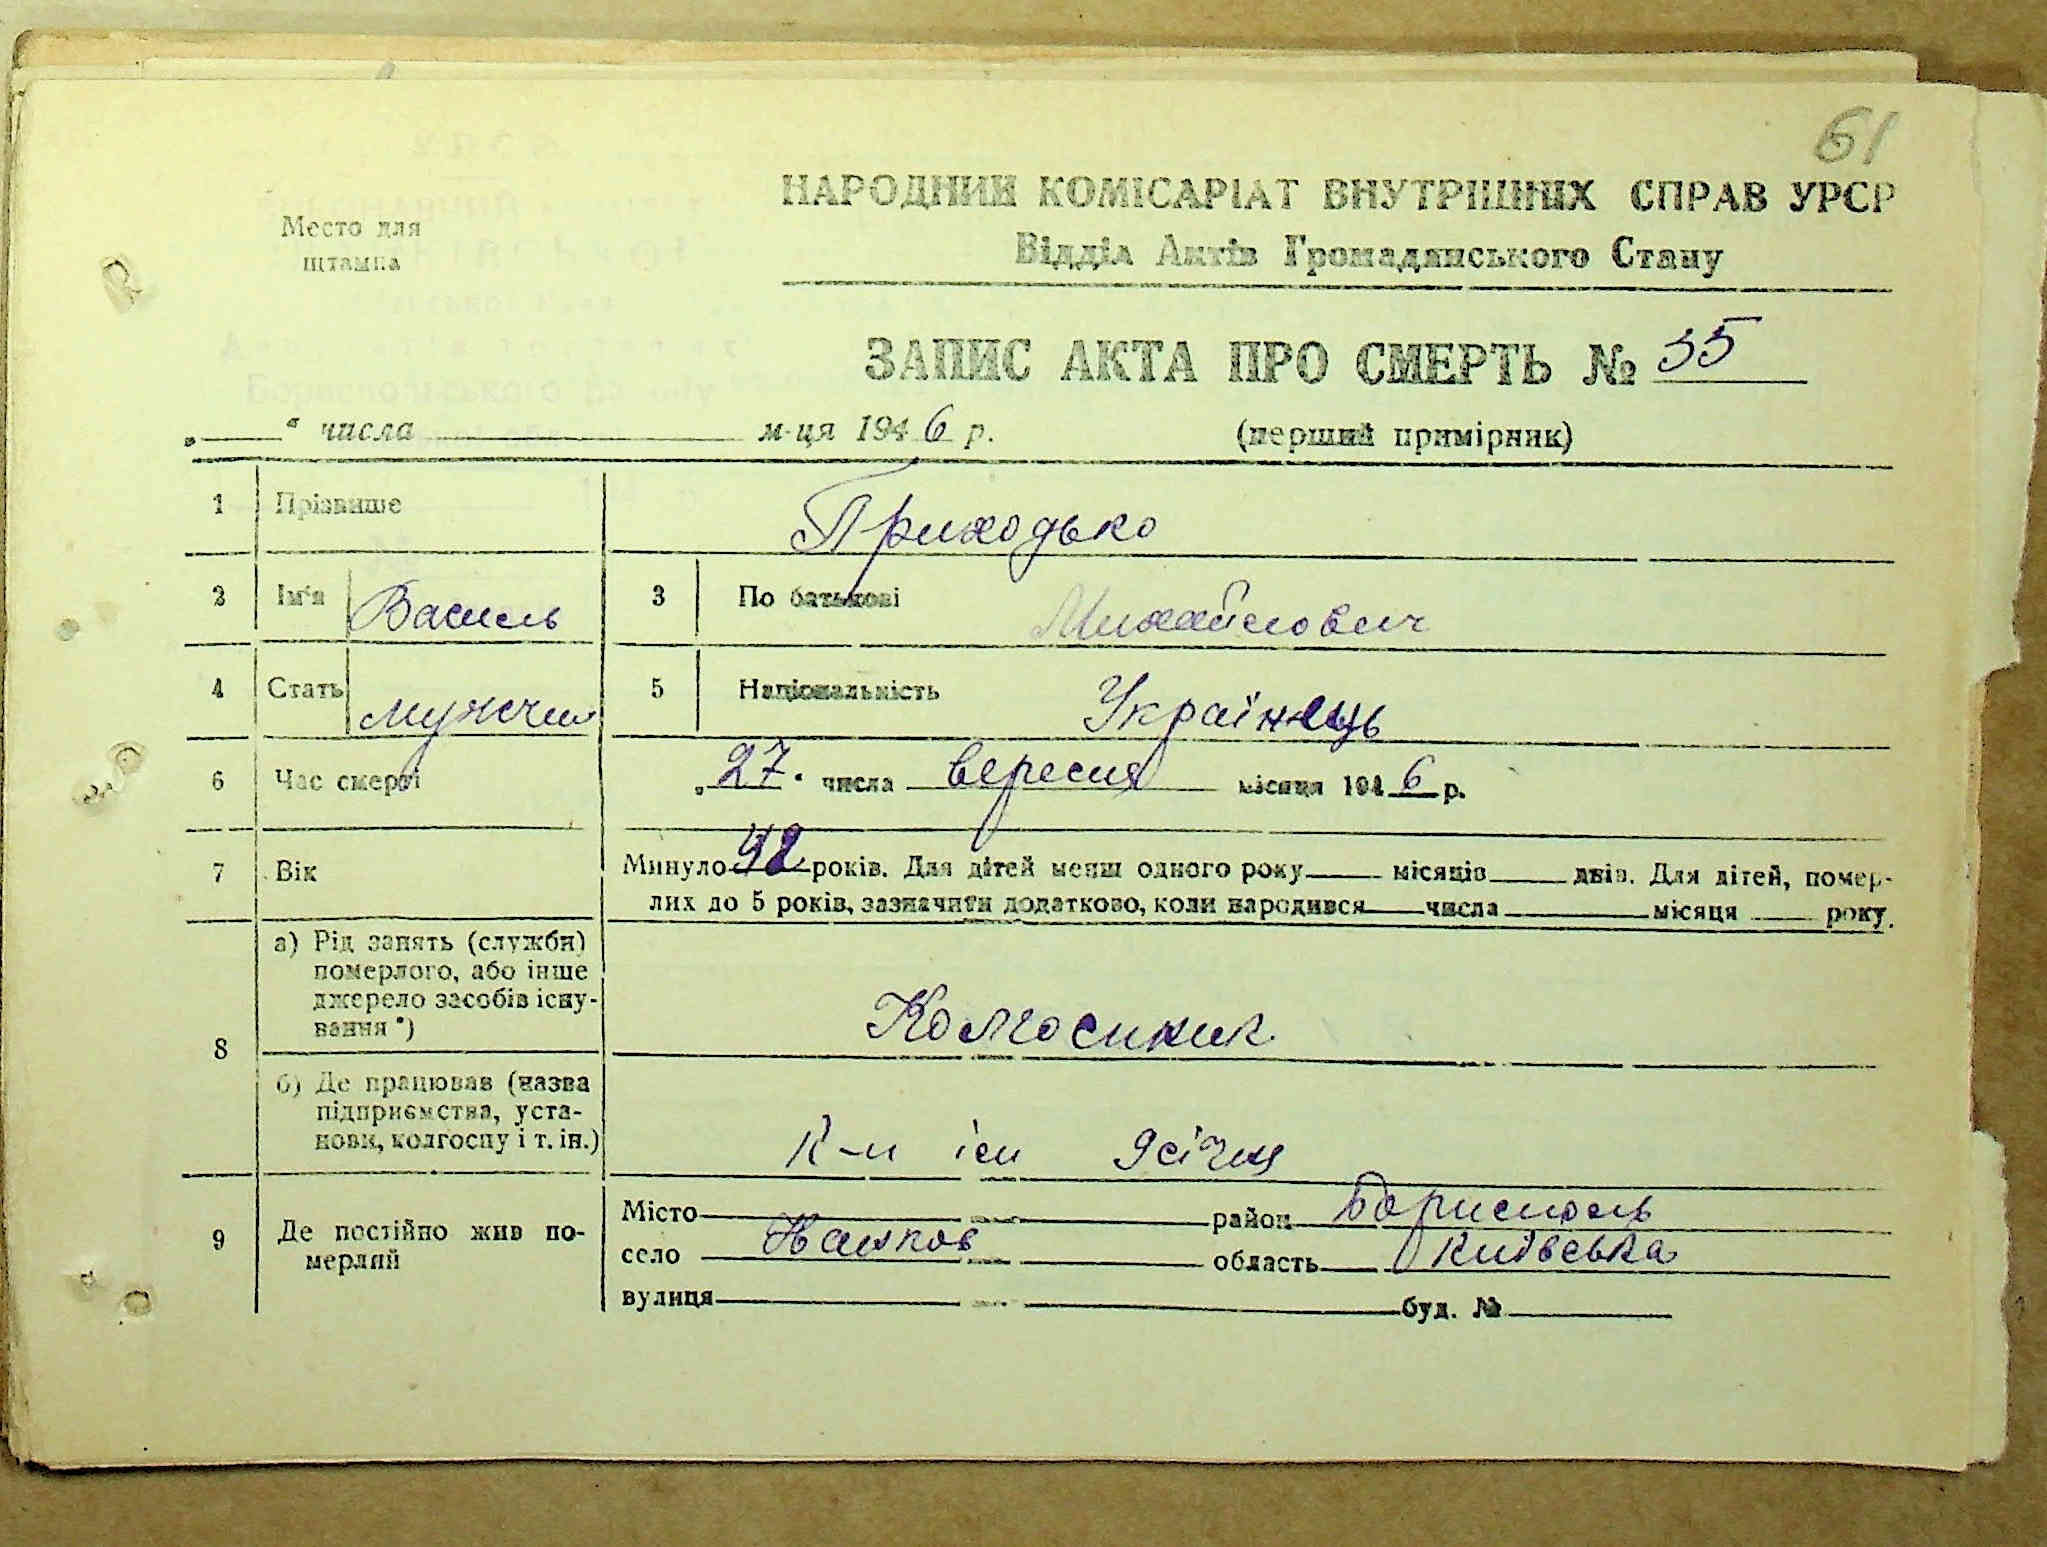 61
Место для
штампа
НАРОДНИЙ КОМІСАРІАТ ВНУТРІШНІХ СПРАВ УРСР
Відділ Актів Громадянського Стану
ЗАПИС АКТА ПРО СМЕРТЬ № 35
„ “ числа м-ця 1946 р. (перший примірник)
1 Прізвище Приходько
2 Ім'я Василь 3 По батькові Михайлович
4 Стать мужчин 5 Національність Українець
6 Час смерті „27. числа вересня місяця 1946 р.
7 Вік Минуло 42 років. Для дітей менш одного року місяців днів. Для дітей, помер-
лих до 5 років, зазначити додатково, коли народився числа місяця року.
8 а) Рід занять (служби)
померлого, або інше
джерело засобів існу-
вання *)
Колгоспник
б) Де працював (назва
підприємства, уста-
нови, колгоспу і т. ін.)
К-п ім 9 січня
9 Де постійно жив по-
мерлий
Місто район Бориспіль
село область Київська
вулиця буд. №